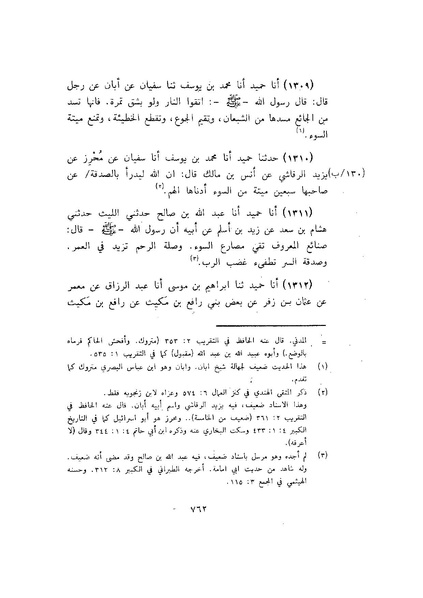 (١٣٠٩) أنا حميد أنا محمد بن يوسف ثنا سفيان عن أبان عن رجل
قال: قال رسول الله -ﷺ-: اتقوا النار ولو بشق تمرة. فانها تسد
من الجائع مسدها من الشبعان، وتقيم الجوع، وتقطع الخطيئة، وتمنع ميتة
السوء.(١)
(١٣١٠) حدثنا حميد أنا محمد بن يوسف أنا سفيان عن مُحْرِز عن
(١٣٠/ب)يزيد الرقاشي عن أنس بن مالك قال: ان الله ليدرأ بالصدقة/ عن
صاحبها سبعين ميتة من السوء أدناها الهم.(٢)
(١٣١١) أنا حميد أنا عبد الله بن صالح حدثني الليث حدثني
هشام بن سعد عن زيد بن اسلم عن أبيه أن رسول الله -ﷺ- قال:
صنائع المعروف تقي مصارع السوء. وصلة الرحم تزيد في العمر.
وصدقة السر تطفىء غضب الرب.(٣)
(١٣١٢) أنا حميد ثنا ابراهيم بن موسى أنا عبد الرزاق عن معمر
عن عثان بن زفر عن بعض بني رافع بن مكيث عن رافع بن مكيث
= المدني. قال عنه الحافظ في التقريب ٢: ٣٥٣ (متروك. وأفحش الحاكم فرماه
بالوضع.) وأبوه عبيد الله بن عبد الله (مقبول) كما في التقريب ١: ٥٣٥.
(١) هذا الحديث ضعيف لجهالة شيخ ابان. وابان وهو ابن عياش البصري متروك كما
تقدم.
(٢) ذكر التقي الهندي في كنز العمال ٦: ٥٧٤ وعزاه لابن زنجويه فقط.
وهذا الاسناد ضعيف، فيه يزيد الرقاشي واسم أبيه أبان. قال عنه الحافظ في
التقريب ٢: ٣٦١ (ضعيف من الخامسة).. ومحرز هو أبو اسرائيل كما في التاريخ
الكبير ٤: ١: ٤٣٣ وسكت البخاري عنه وذكره ابن أبي حاتم ٤: ١: ٣٤٤ وقال (لا
أعرفه).
(٣) لم أجده وهو مرسل باسناد ضعيف، فيه عبد الله بن صالح وقد مضى أنه ضعيف.
وله شاهد من حديث ابي امامة. أخرجه الطبراني في الكبير ٨: ٣١٢. وحسنه
الهيثمي في المجمع ٣: ١١٥.
٧٦٢